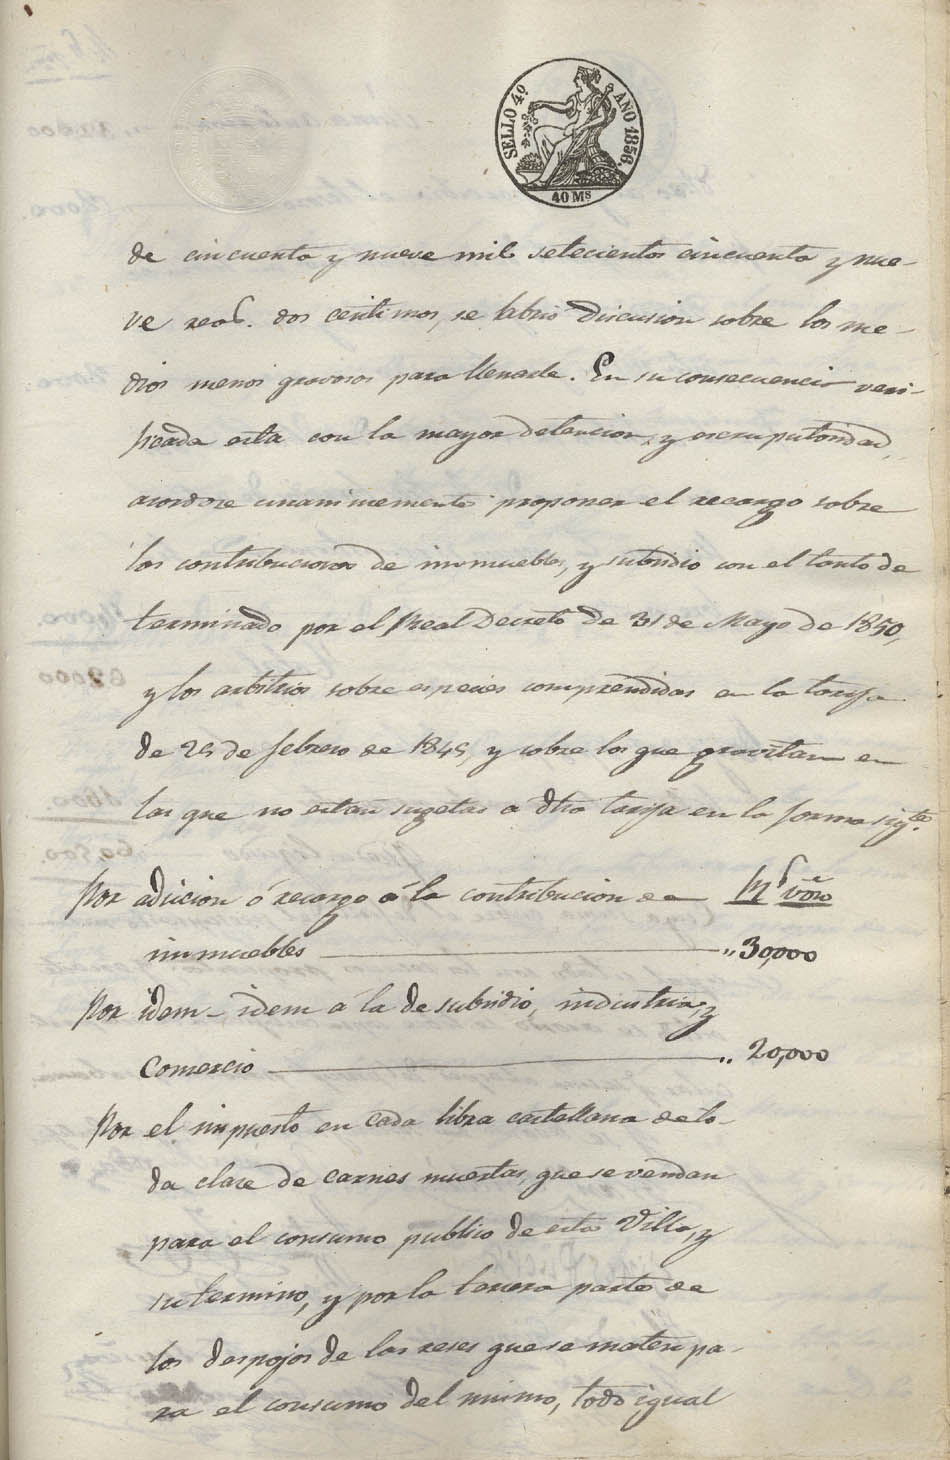 SELLO 4º. AÑO 1856.
40 Ms
de cincuenta y nueve mil setecientos cincuenta y nue-
ve reas. dos centimos, se habrio discusion sobre los me-
dios menos gravosos para llenarle. En su consecuencia veri-
ficada esta con la mayor detencion, y escrupulosidad,
acordose unanimemente proponer el recargo sobre
las contribuciones de inmuebles, y subsidio con el tanto de
terminado por el Real Decreto de 31 de Mayo de 1850,
y los arbitrios sobre especies comprendidas en la tarifa
de 25 de febrero de 1848, y sobre los que gravitan en
las que no estan sugetas a dha tarifa en la forma sigte.
Por adiccion ó recargo á la contribucion de Rs von
inmuebles " 30,000
Por idem - idem á la de subsidio, industria, y
Comercio " 20,000
Por el impuesto en cada libra castellana de to-
da clase de carnes muertas, que se vendan
para el consumo publico de esta Villa, y
su termino, y por la tercera parte de
los despojos de las reses que se maten pa-
ra el consumo del mismo, todo igual